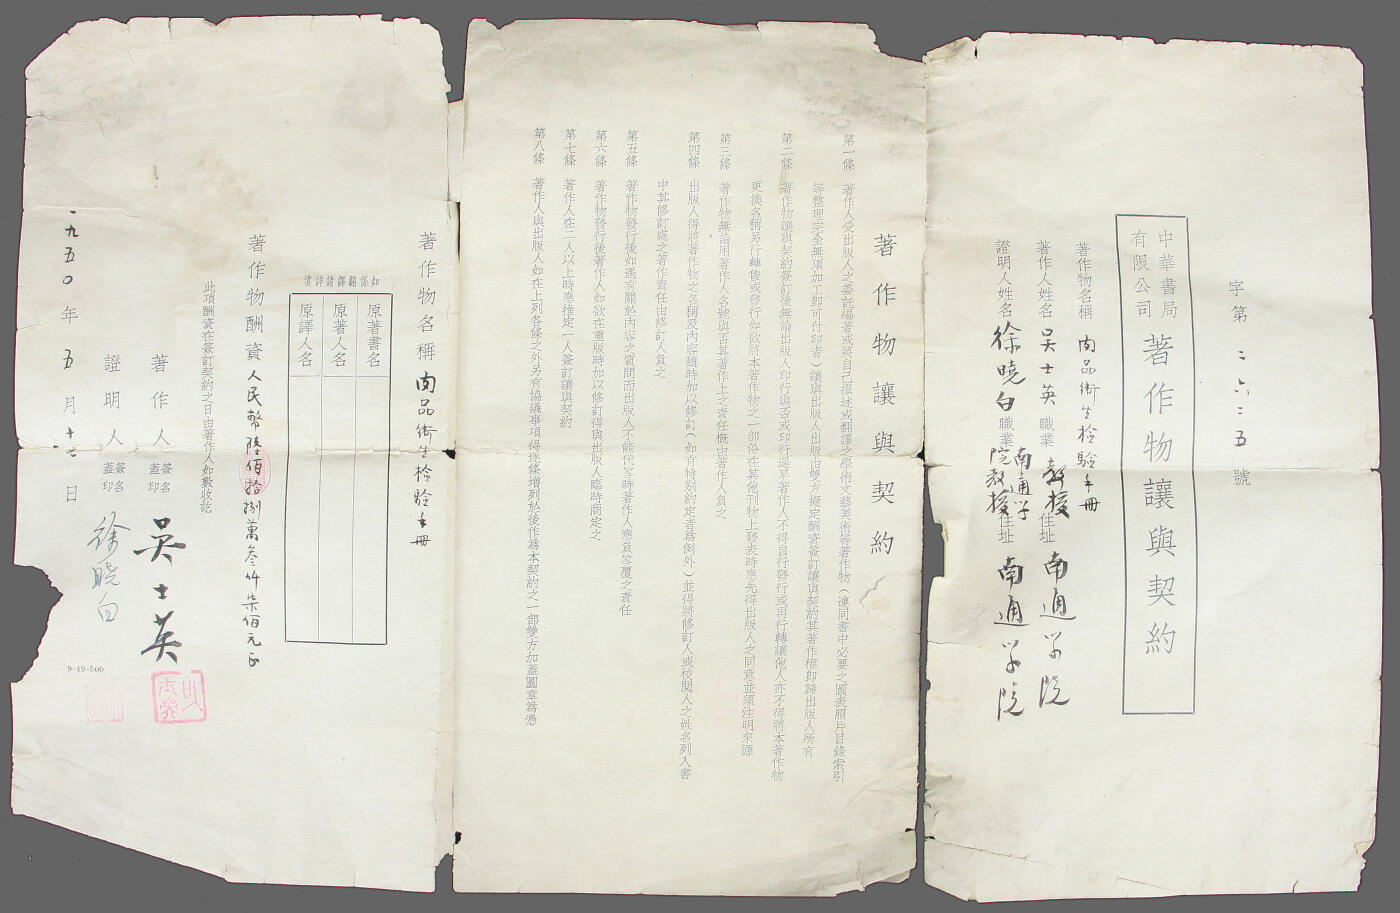 字第二六二五號
中華書局
有限公司
著作物讓與契約
著作物名稱 肉品衛生檢驗手冊
著作人姓名 吴士英 職業 教授 住址 南通学院
證明人姓名 徐曉白 職業 南通学院教授 住址 南通学院
著作物讓與契約
第一條 著作人受出版人之委託編著或將自己撰述或翻譯之學術文藝美術等著作物(連同書中必要之圖表照片目錄索引
等整理完全無須加工卽可付印者)讓與出版人出版由雙方擬定酬資簽訂讓與契約其著作權卽歸出版人所有
第二條 著作物讓與契約簽訂後無論出版人印行與否或印行遲早著作人不得自行發行或再行轉讓他人亦不得將本著作物
更換名稱另行轉售或發行如欲將本著作物之一部份在其他刊物上發表時應先得出版人之同意並須注明來源
第三條 著作物無論用著作人名號與否其著作上之責任概由著作人負之
第四條 出版人得將著作物之名稱及內容隨時加以修訂(如有特別約定者爲例外)並得將修訂人或校閱人之姓名列入書
中其修訂處之著作責任由修訂人負之
第五條 著作物發行後如遇有關於內容之質問而出版人不能代答時著作人應負答覆之責任
第六條 著作物發行後著作人如欲在重版時加以修訂得與出版人臨時商定之
第七條 著作人在二人以上時應推定一人簽訂讓與契約
第八條 著作人與出版人如在上列各條之外另有協議事項得逐條增列於後作爲本契約之一部雙方加蓋圖章爲憑
著作物名稱 肉品衛生檢驗手冊
如係翻譯請詳填
原著書名
原著人名
原譯人名
著作物酬資 人民幣陸佰拾捌萬叁仟柒佰元正
此項酬資在簽訂契約之日由著作人如數收訖
著作人 簽名蓋印 吴士英
證明人 簽名蓋印 徐晓白
一九五〇年五月十七日
9-49-500